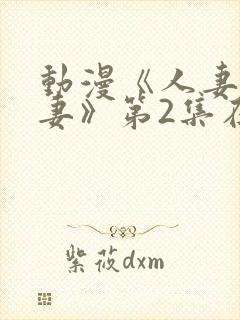 動漫《人妻
妻》第2集在
紫莜dxm